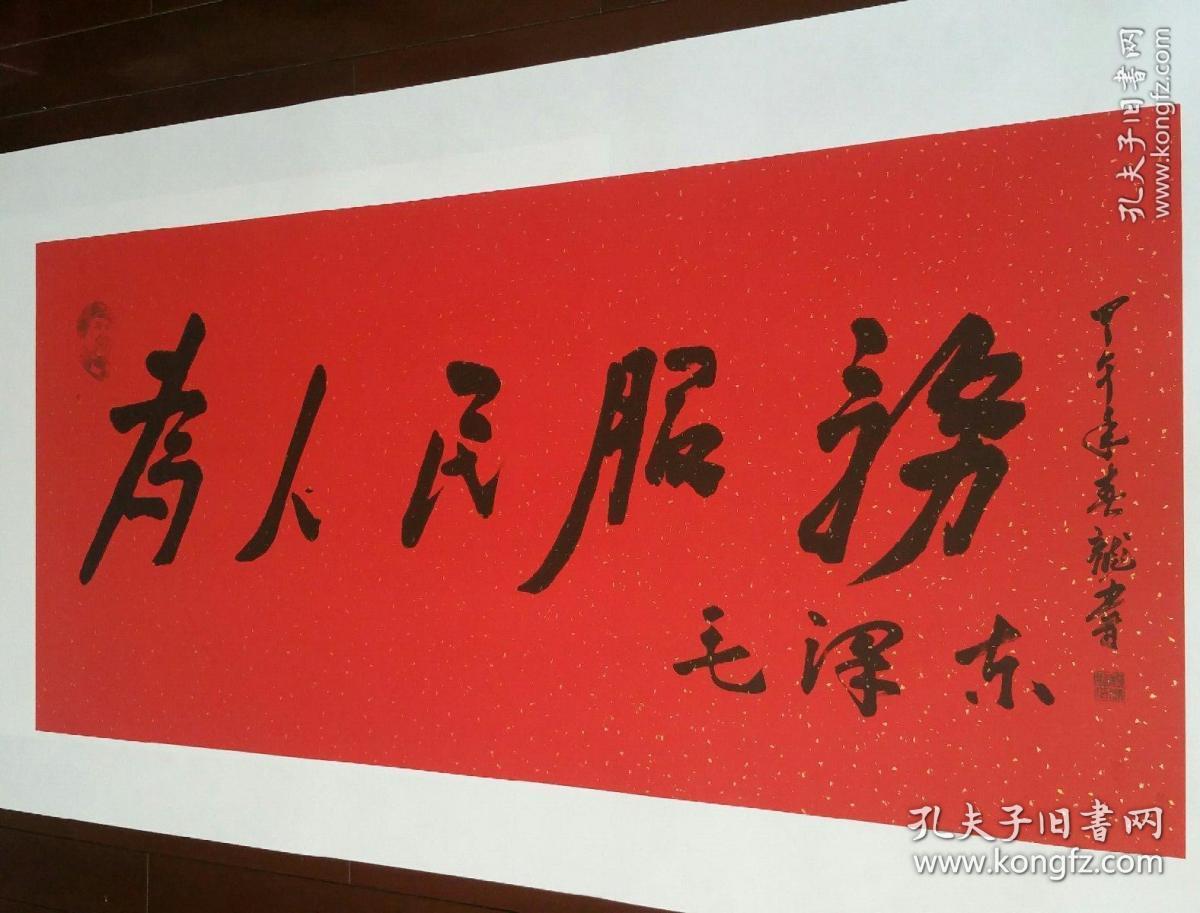 为人民服務
毛泽东
甲午年春龍書
孔夫子旧書网
www.kongfz.com
孔夫子旧書网
www.kongfz.com